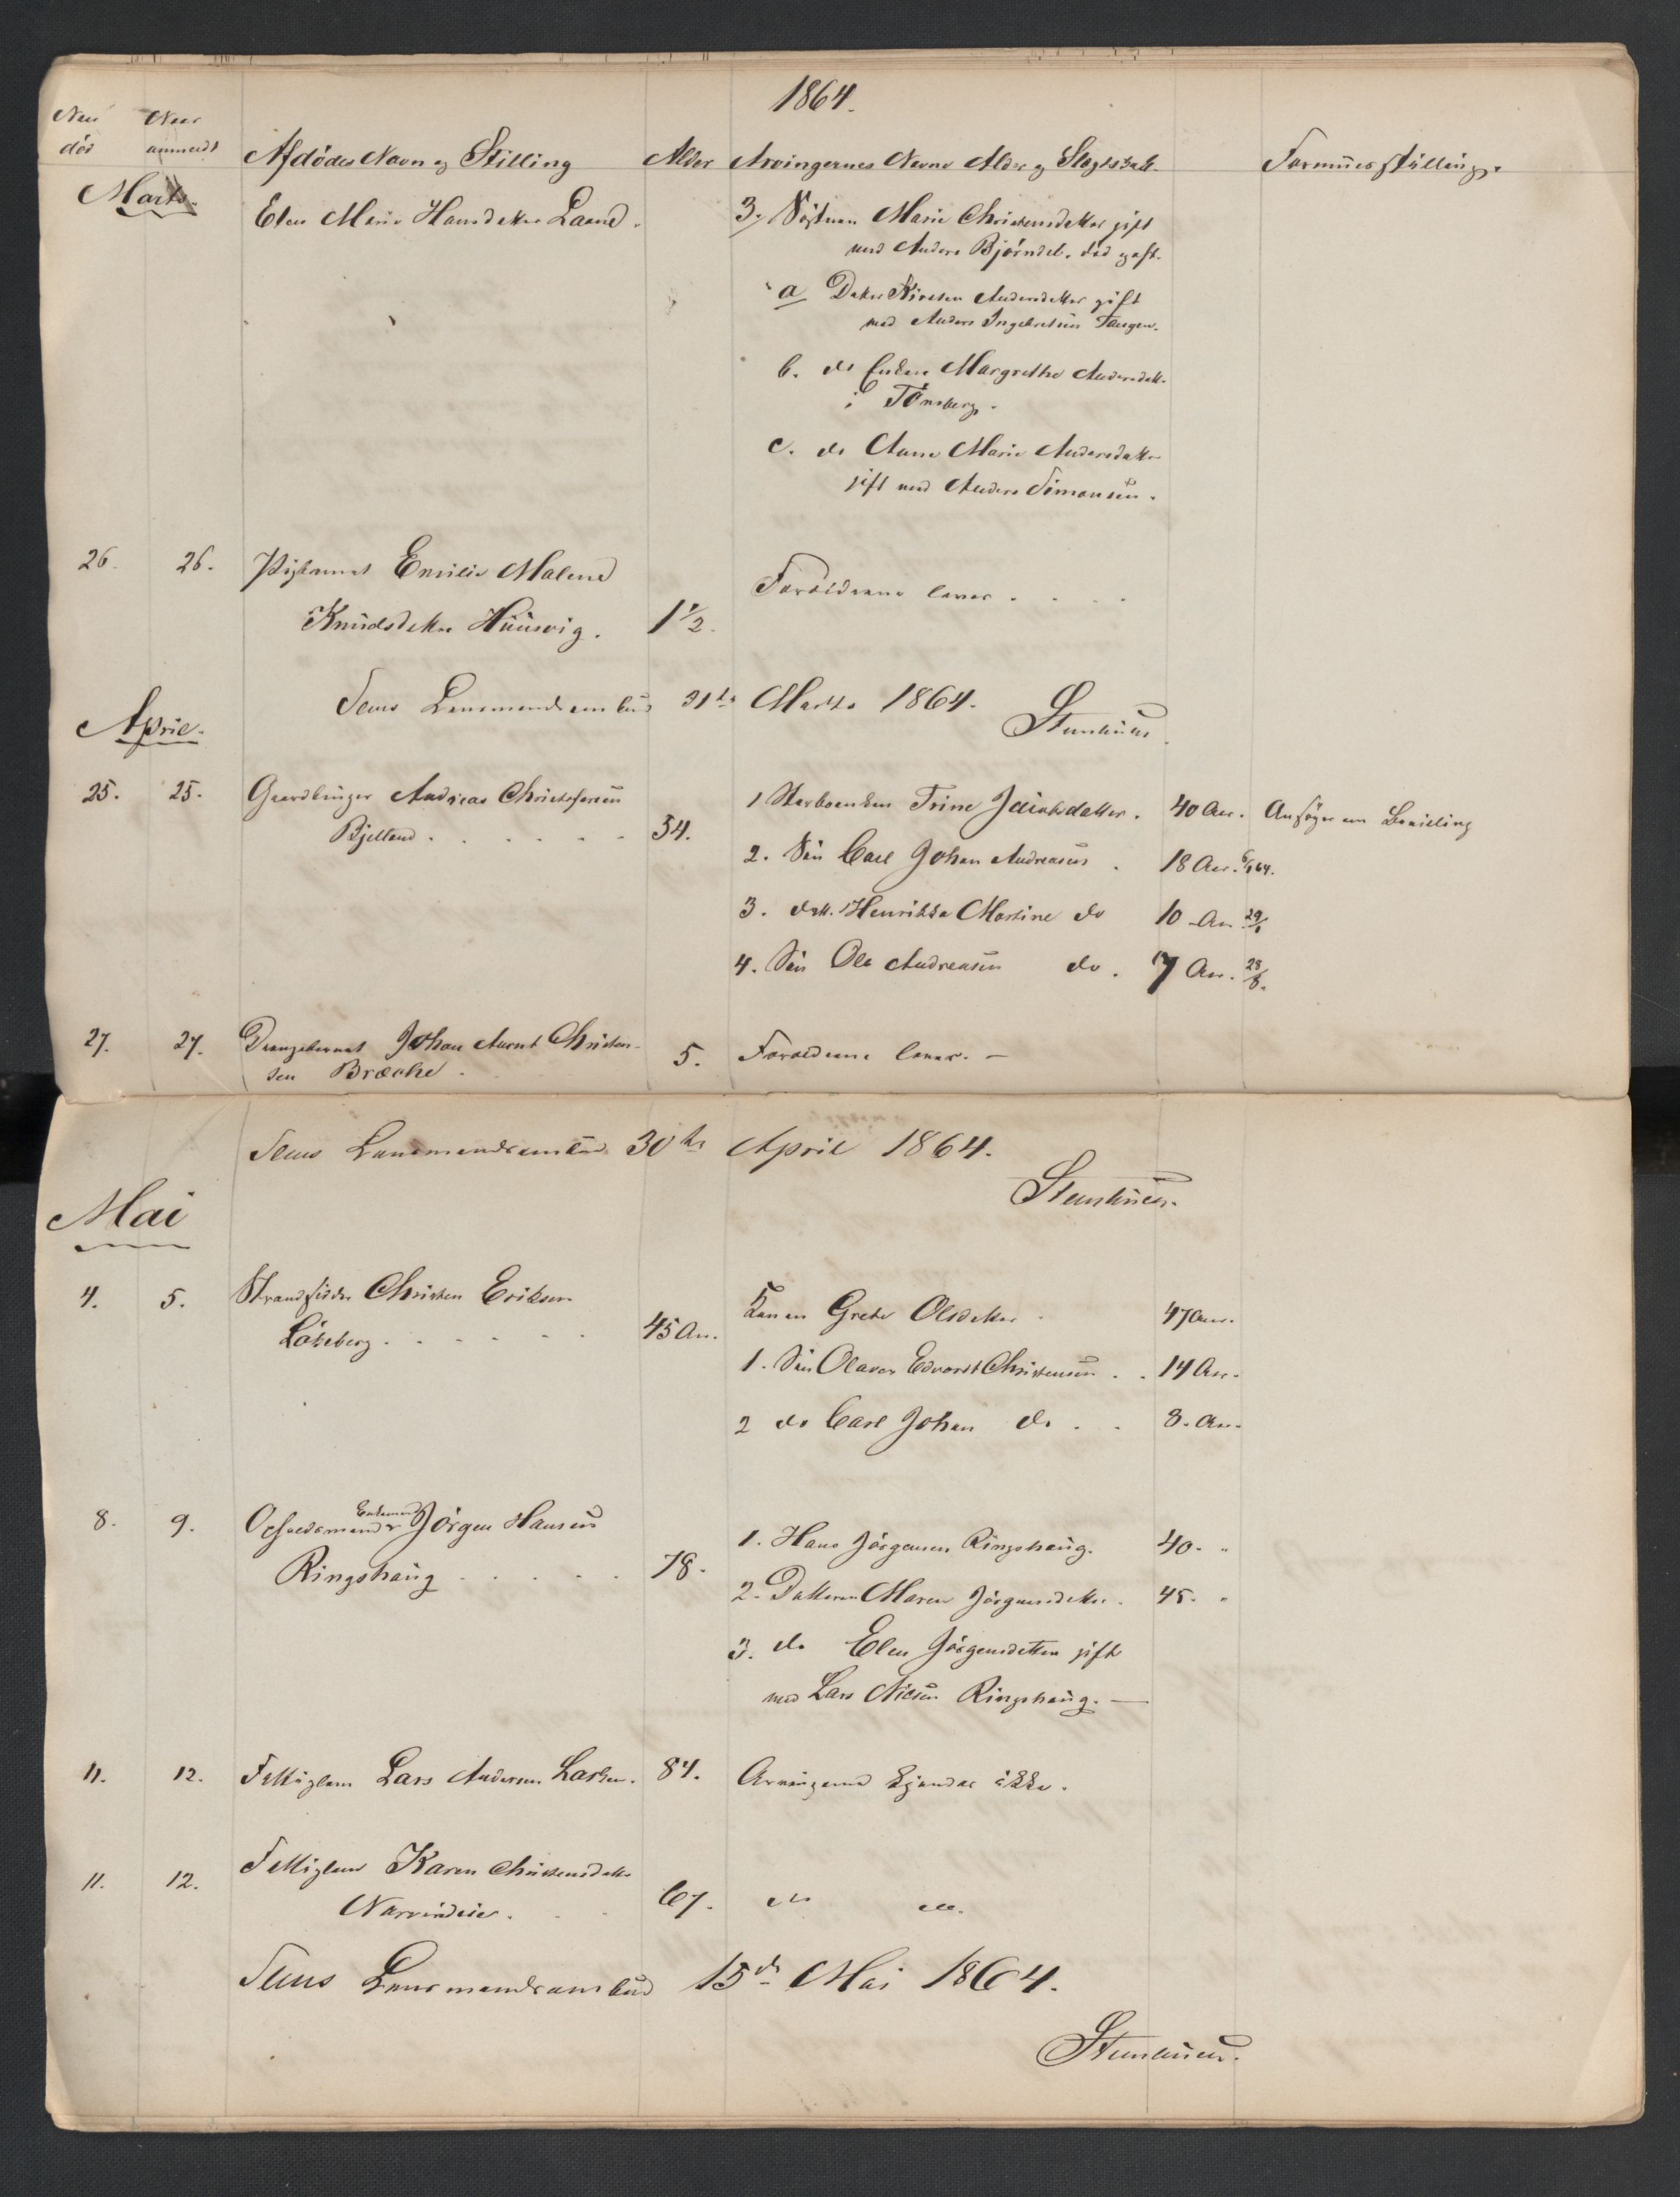 1864.
Naar død Naar anmeldt Afdødes Navn og Stilling Alder Arvingernes Navne Alder og Slægtskab. Formuesstilling.
Marts.
Elen Marie Hansdatter Laane. 3. Søsteren Marie Christensdatter gift
med Anders Bjørndel. død og eft.
a Datter Kirsten Andersdatter gift
med Anders Ingebretsen Taugen.
b. do Enken Margrethe Andersdatt.
i Tønsberg.
c. do Anne Marie Andersdatter
gift med Anders Simonsen.
26. 26. Pigebarnet Emilie Malene
Knudsdatter Huusvig. 1 1/2. Forældrene lever. . . .
Sems Lensmandsembed 31te Marts 1864.
Steenhuus.
April.
25. 25. Gaardbruger Andreas Christophersen
Bjelland . . . . . . 54.
1 Sterboenken Trine Jacobsdatter. 40 Aar. Ansøger om Bevilling
2. Søn Carl Johan Andreasen . 18 Aar. 6/1 64.
3. datt. Henrikka Martine do 10 Aar 29/1
4. Søn Ole Andreasen do. 7 Aar. 28/8.
27. 27. Drengebarnet Johan Arnt Christen-
sen Bræche. 5. Forældrene lever. —
Sems Lensmandsembed 30te April 1864.
Steenhuus.
Mai
4. 5. Strandsidder Christen Eriksen
Løkeberg . . . . . . 45 Aar.
Konen Grethe Olsdatter . 47 Aar.
1. Søn Olaves Edvardt Christensen . . 14 Aar.
2 do Carl Johan do . . 8. Aar.
8. 9. Opholdsmand & Enkemand Jörgen Hansen
Ringshaug . . . . . 78.
1. Hans Jörgensen Ringshaug. 40. "
2. Datteren Maren Jörgensdatter. 45. "
3. do Elen Jörgensdatter gift
med Lars Nilsen Ringshaug. —
11. 12. Fattiglem Lars Andersen Larken. 84. Arvingerne kjendes ikke.
11. 12. Fattiglem Karen Christensdatter
. . 67. do do.
Sems Lensmandsembed 15de Mai 1864.
Steenhuus.